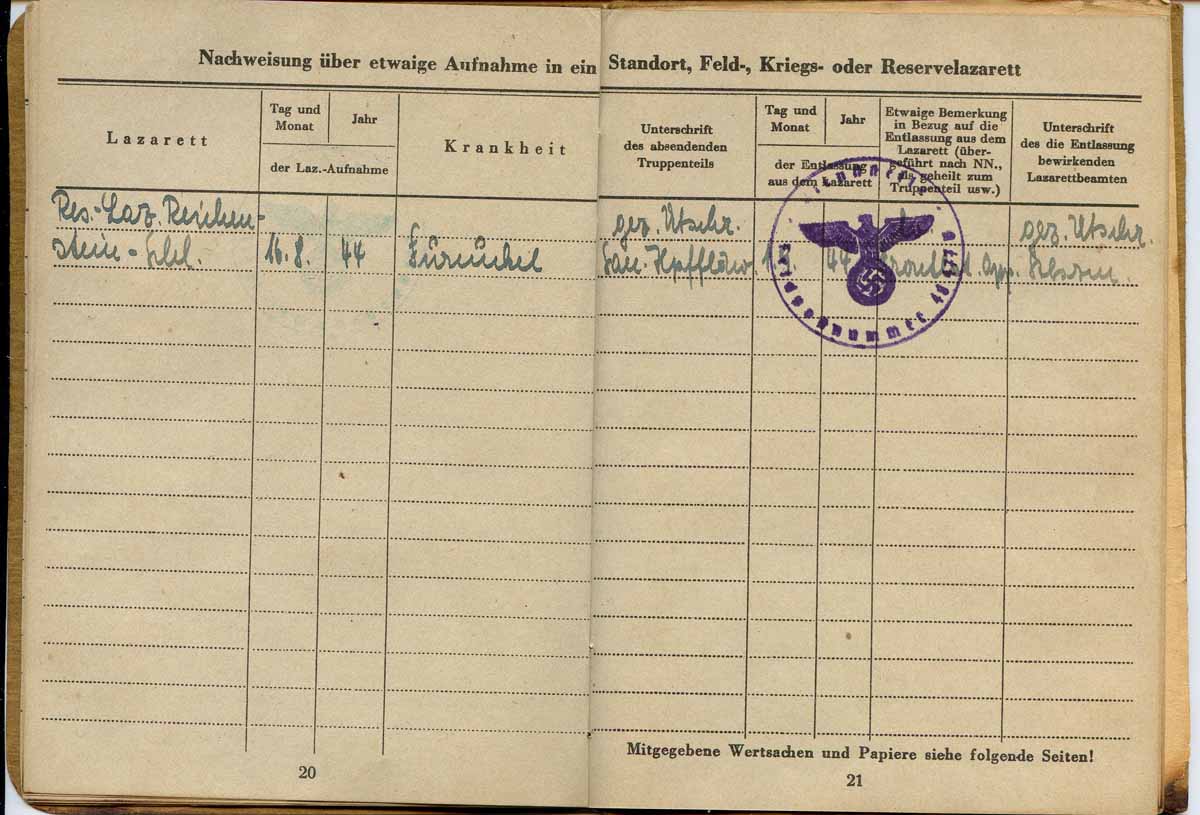 Nachweisung über etwaige Aufnahme in ein Standort, Feld-, Kriegs- oder Reservelazarett
Lazarett
Tag und Monat
Jahr
der Laz.-Aufnahme
Krankheit
Unterschrift
des absendenden
Truppenteils
Tag und Monat
Jahr
der Entlassung
aus dem Lazarett
Etwaige Bemerkung
in Bezug auf die
Entlassung aus dem
Lazarett (über-
geführt nach NN.,
als geheilt zum
Truppenteil usw.)
Unterschrift
des die Entlassung
bewirkenden
Lazarettbeamten
Res.-Laz. Reichen-
stein-Schl.
16.8.
44
Furunkel
gez. Utschr.
44
gez. Utschr.
Mitgegebene Wertsachen und Papiere siehe folgende Seiten!
20
21